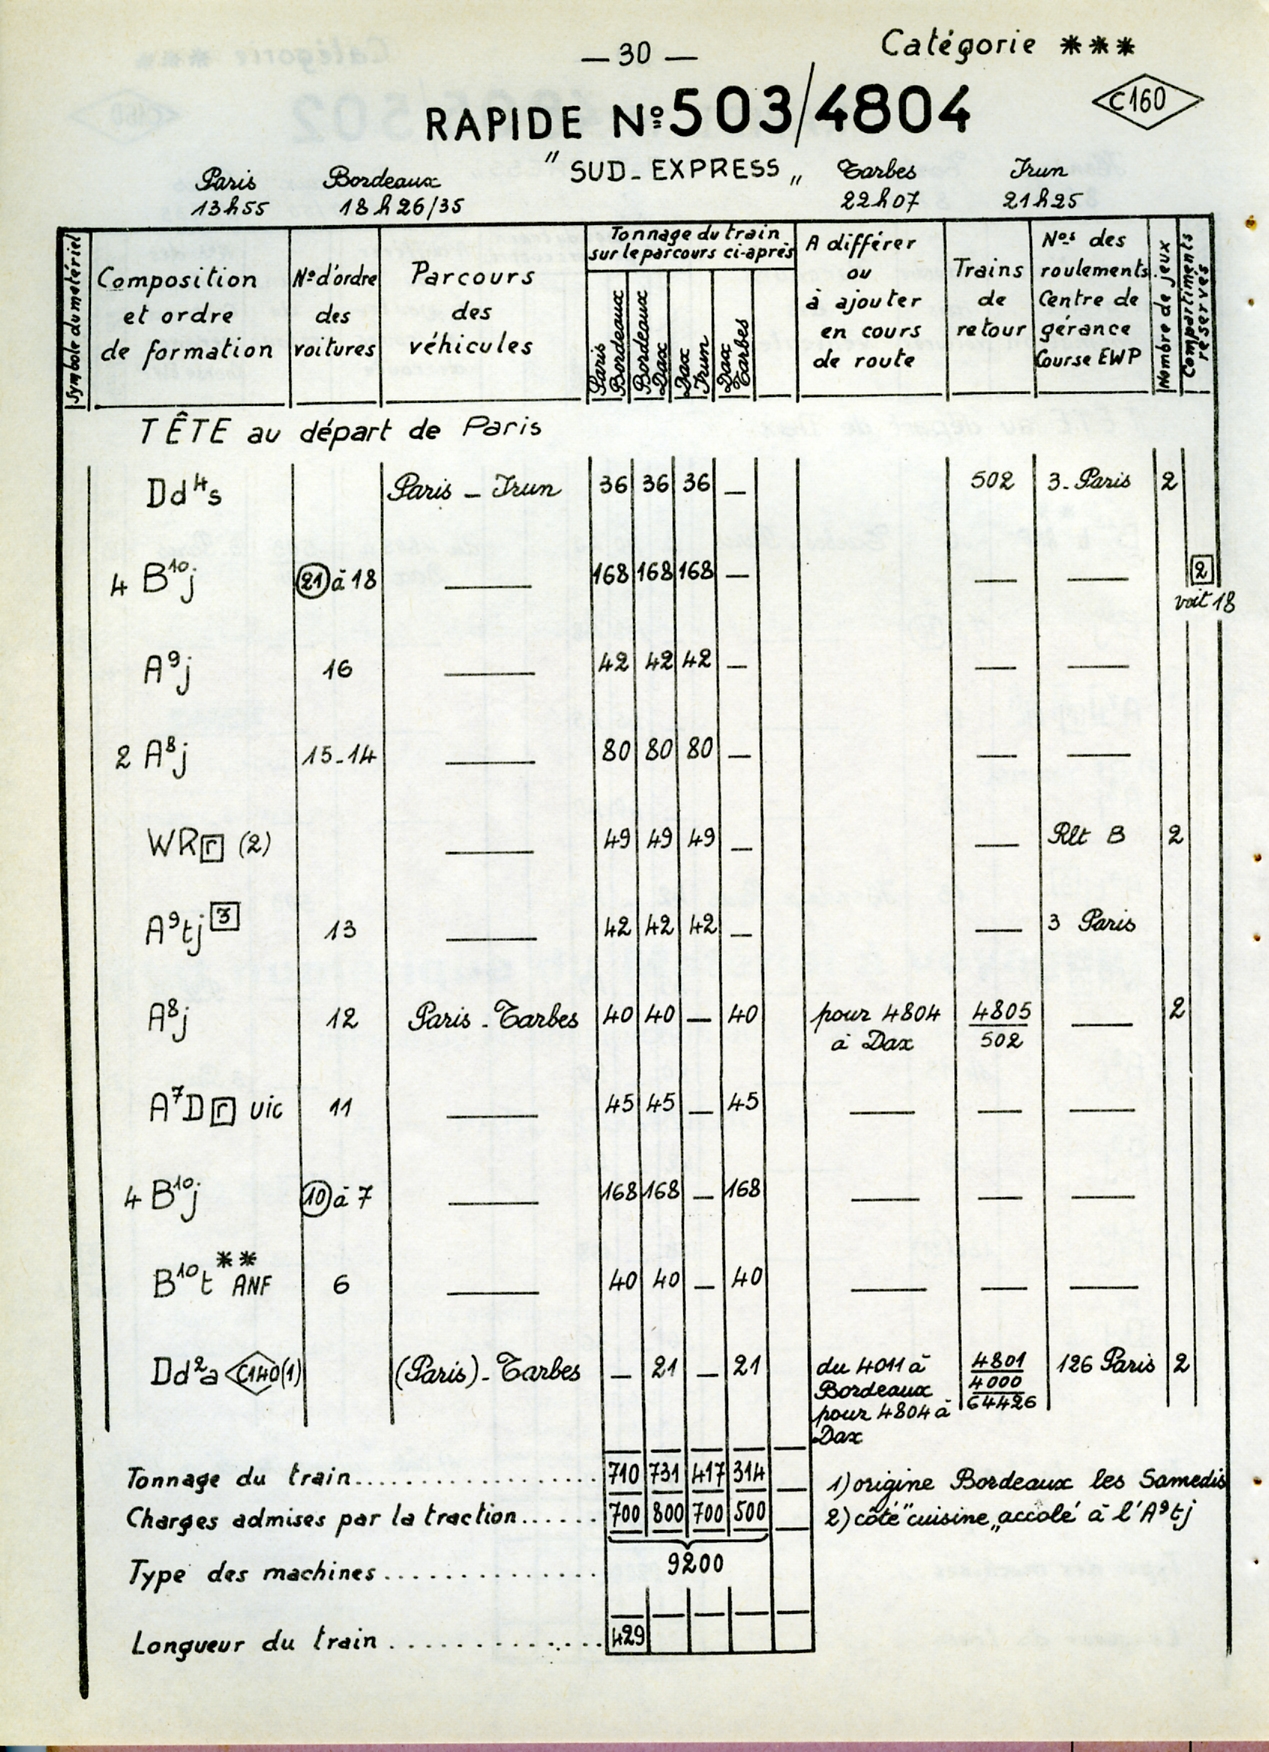 — 30 —
Catégorie ***
RAPIDE Nº 503/4804
C160
" SUD-EXPRESS „
Paris Bordeaux Tarbes Irun
13h55 18h26/35 22h07 21h25
Symbole du matériel
Composition et ordre de formation
Nº d'ordre des voitures
Parcours des véhicules
Tonnage du train sur le parcours ci-après
Paris Bordeaux
Bordeaux Dax
Dax Irun
Dax Tarbes
A différer ou à ajouter en cours de route
Trains de retour
Nos des roulements Centre de gérance Course EWP
Nombre de jeux
Compartiments réservés
TÊTE au départ de Paris
Dd⁴s Paris - Irun 36 36 36 — 502 3-Paris 2
4 B¹⁰j 21 à 18 — 168 168 168 — — — 2
voit 18
A⁹j 16 — 42 42 42 — — —
2 A⁸j 15-14 — 80 80 80 — — —
WR r (2) — 49 49 49 — — Rlt B 2
A⁹tj 3 13 — 42 42 42 — — 3 Paris
A⁸j 12 Paris - Tarbes 40 40 — 40 pour 4804 à Dax 4805 502 — 2
A⁷D r vic 11 — 45 45 — 45 — — —
4 B¹⁰j 10 à 7 — 168 168 — 168 — — —
B¹⁰t ** ANF 6 — 40 40 — 40 — — —
Dd²a C140 (1) (Paris)-Tarbes — 21 — 21 du 4011 à Bordeaux pour 4804 à Dax 4801 4000 64426 126 Paris 2
Tonnage du train.................. 710 731 417 314 —
1) origine Bordeaux les Samedis
Charges admises par la traction...... 700 800 700 500 —
2) côté "cuisine„ accolé à l'A⁹tj
Type des machines................ 9200
— — — — —
Longueur du train ................ 429